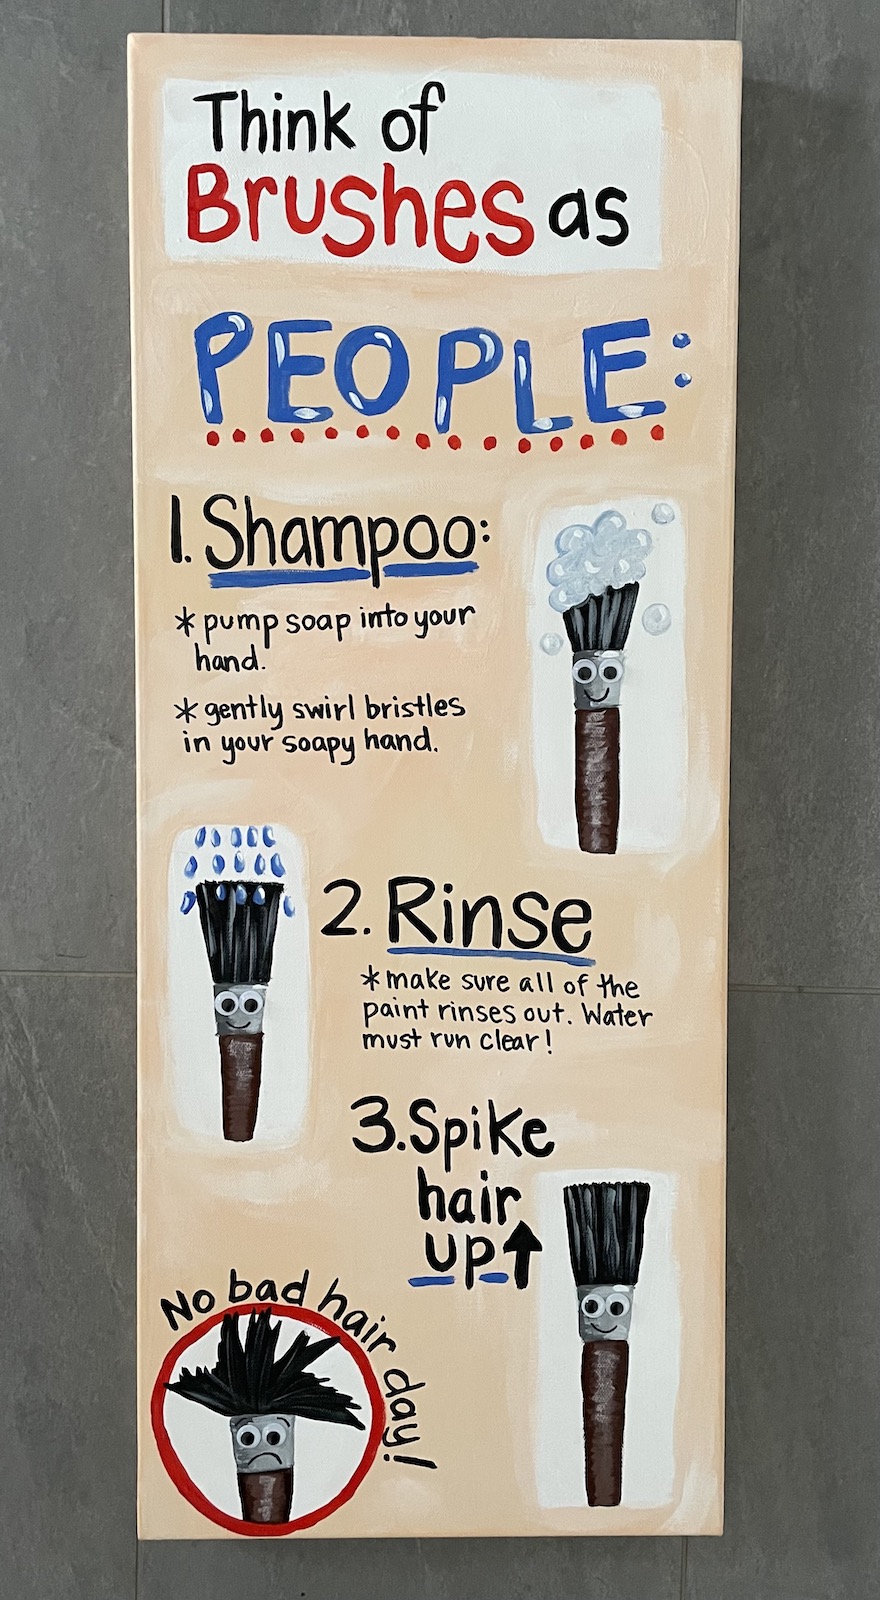 Think of
Brushes as
PEOPLE:
1. Shampoo:
* pump soap into your
hand.
* gently swirl bristles
in your soapy hand.
2. Rinse
* make sure all of the
paint rinses out. Water
must run clear!
3. Spike
hair
up↑
No bad hair day!